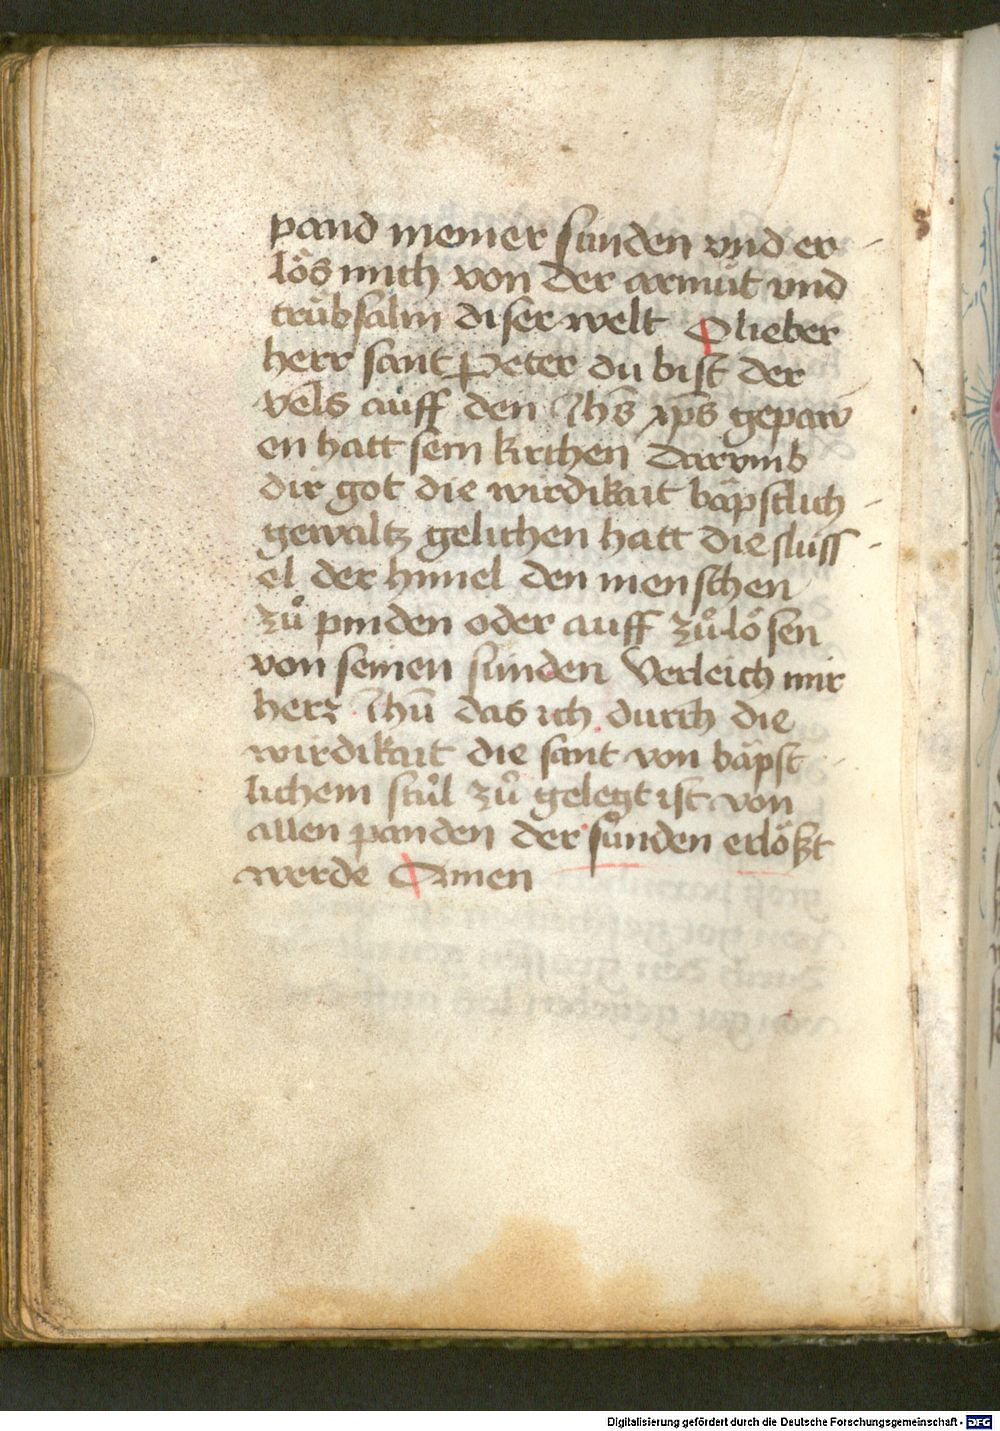 pand meiner sünden vnd er-
lös mich von der armůt vnd
trübsalin diser welt O lieber
herr sant Peter du bist der
vels auff den Jhs xps gepaw-
en hatt sein kirchen Darvmb
dir got die wirdikait bäpstlich-
gewaltz gelichen hatt die slüss-
el der himel den menschen
zů pinden oder auff zů lösen
von seinen sünden Verleich mir
herz Jhū das ich durch die
wirdikait die sant von bäpst-
lichem stůl zů gelegt ist von
allen panden der sünden erlößt
werde Amen
Digitalisierung gefördert durch die Deutsche Forschungsgemeinschaft - DFG